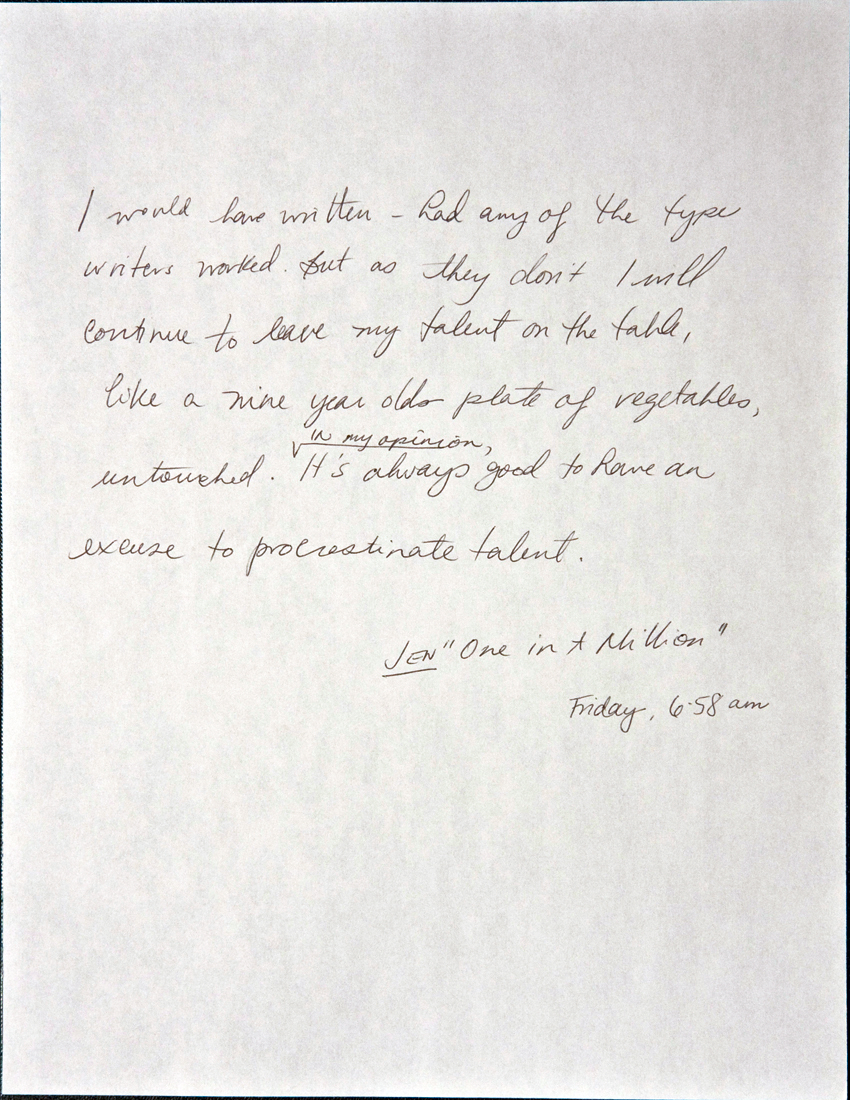 I would have written – had any of the type
writers worked. But as they don't I will
continue to leave my talent on the table,
like a nine year olds plate of vegetables,
in my opinion,
untouched. It's always good to have an
excuse to procrastinate talent.
JEN "One in A Million"
Friday, 6:58 am